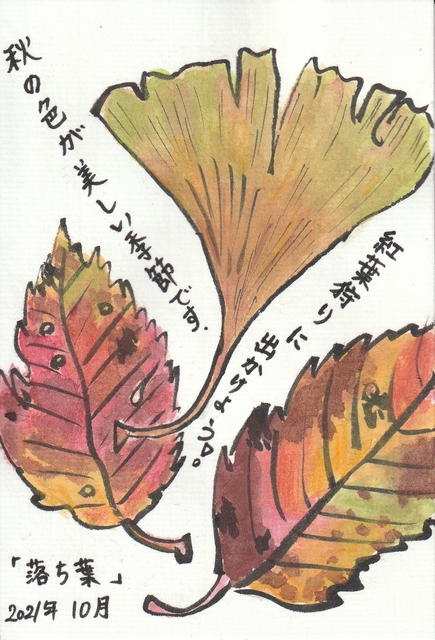 秋の色が美しい季節です.
紅葉狩りに出かけよう。
「落ち葉」
2021年 10月